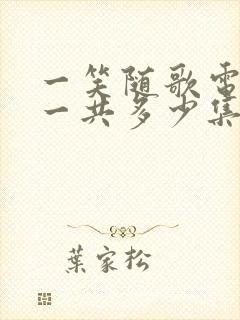 一笑随歌電
一共多少集
葉家松